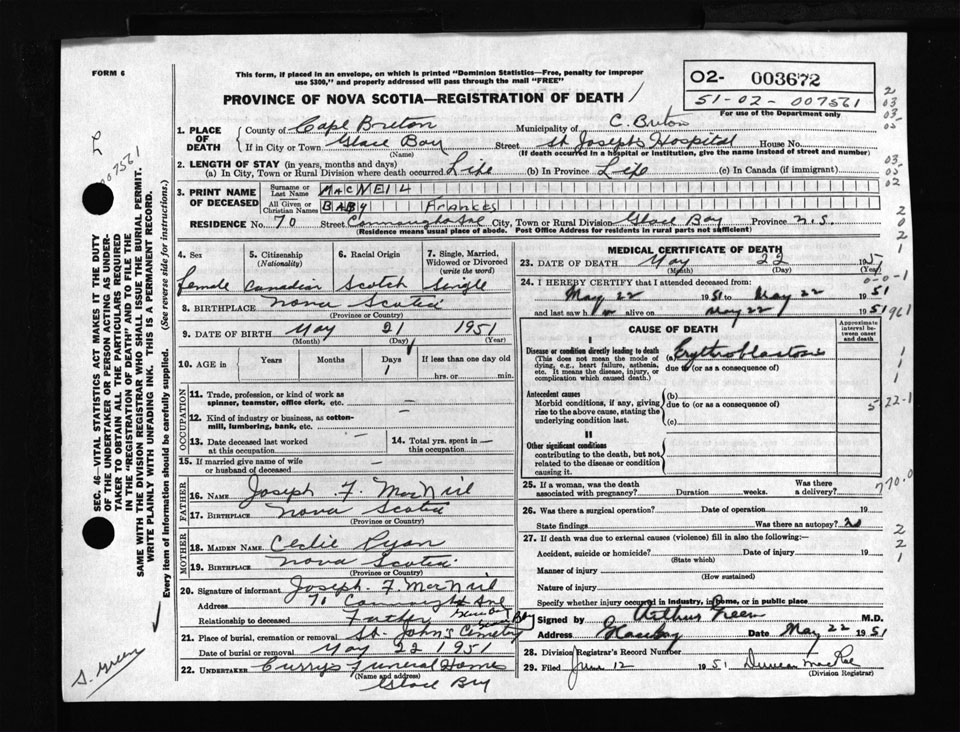 FORM 6
This form, if placed in an envelope, on which is printed "Dominion Statistics—Free, penalty for improper
use $300," and properly addressed will pass through the mail "FREE"
O2- 003672
51-02-007561
For use of the Department only
PROVINCE OF NOVA SCOTIA—REGISTRATION OF DEATH
1. PLACE OF DEATH { County of Cape Breton Municipality of C. Breton
If in City or Town Glace Bay Street St Joseph's Hospital House No.
(Name) (If death occurred in a hospital or institution, give the name instead of street and number)
2. LENGTH OF STAY (in years, months and days)
(a) In City, Town or Rural Division where death occurred Life (b) In Province Life (c) In Canada (if immigrant)
3. PRINT NAME OF DECEASED { Surname or Last Name MACNEIL
All Given or Christian Names BABY FRANCES
RESIDENCE No. 70 Street Connaught Ave City, Town or Rural Division Glace Bay Province N.S.
(Residence means usual place of abode. Post Office Address for residents in rural parts not sufficient)
4. Sex 5. Citizenship (Nationality) 6. Racial Origin 7. Single, Married, Widowed or Divorced (write the word)
female Canadian Scotch Single
8. BIRTHPLACE Nova Scotia
(Province or Country)
9. DATE OF BIRTH May 21 1951
(Month) (Day) (Year)
10. AGE in { Years Months Days If less than one day old
1 hrs. or min.
OCCUPATION
11. Trade, profession, or kind of work as
spinner, teamster, office clerk, etc. —
12. Kind of industry or business, as cotton-
mill, lumbering, bank, etc. —
13. Date deceased last worked
at this occupation —
14. Total yrs. spent in
this occupation —
15. If married give name of wife
or husband of deceased —
FATHER
16. NAME Joseph F. MacNeil
17. BIRTHPLACE Nova Scotia
(Province or Country)
MOTHER
18. MAIDEN NAME Cecilie Ryan
19. BIRTHPLACE Nova Scotia
(Province or Country)
20. Signature of informant Joseph F. MacNeil
Address 70 Connaught Ave
Relationship to deceased Father
21. Place of burial, cremation or removal St. John's Cemetery
Date of burial or removal May 22 1951
22. UNDERTAKER Curry's Funeral Home
(Name and address)
Glace Bay
MEDICAL CERTIFICATE OF DEATH
23. DATE OF DEATH May 22 195
(Month) (Day) (Year)
24. I HEREBY CERTIFY that I attended deceased from:
May 22 1951 to May 22 1951
and last saw h alive on May 22 1951
CAUSE OF DEATH
Approximate interval between onset and death
I
Disease or condition directly leading to death (a) Erythroblastosis
(This does not mean the mode of due to (or as a consequence of)
dying, e.g., heart failure, asthenia,
etc. It means the disease, injury, or
complication which caused death.)
Antecedent causes (b)
Morbid conditions, if any, giving due to (or as a consequence of)
rise to the above cause, stating the
underlying condition last. (c)
II
Other significant conditions
contributing to the death, but not
related to the disease or condition
causing it.
25. If a woman, was the death Was there
associated with pregnancy? Duration weeks. a delivery?
26. Was there a surgical operation? Date of operation 19
State findings Was there an autopsy? no
27. If death was due to external causes (violence) fill in also the following:—
Accident, suicide or homicide? Date of injury 19
(State which)
Manner of injury
(How sustained)
Nature of injury
Specify whether injury occurred in industry, in home, or in public place
Signed by Arthur Green M.D.
Address Glace Bay Date May 22 1951
28. Division Registrar's Record Number
29. Filed June 12 1951 Duncan MacRae
(Division Registrar)
SEC. 46—VITAL STATISTICS ACT MAKES IT THE DUTY
OF THE UNDERTAKER OR PERSON ACTING AS UNDER-
TAKER TO OBTAIN ALL THE PARTICULARS REQUIRED
IN THE "REGISTRATION OF DEATH" AND TO FILE THE
SAME WITH THE DIVISION REGISTRAR WHO SHALL ISSUE THE BURIAL PERMIT.
WRITE PLAINLY WITH UNFADING INK. THIS IS A PERMANENT RECORD.
Every item of information should be carefully supplied. (See reverse side for instructions.)
007561
S. Green
2
03
03-
02
03.
03
02
2
0
2
1
961
1
1
1
5 22-1
770.0
2
2
1